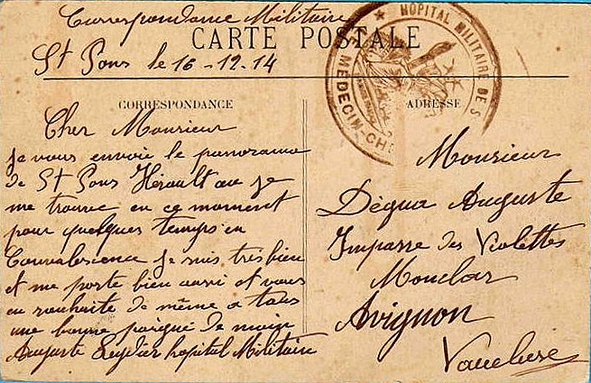 Correspondance Militaire
CARTE POSTALE
St Pons le 16-12-14
HOPITAL MILITAIRE DE S
MEDECIN-CHE
CORRESPONDANCE
Cher Monsieur
je vous envoie le panorama
de St Pons Hérault ou je
me trouve en ce moment
pour quelques temps en
Convalescence je suis très bien
et me porte bien aussi et vous
en souhaite de même a tous
une bonne poigné de main
Auguste hopital Militaire
ADRESSE
Monsieur
Dégua Auguste
Impasse des Violettes
Monclar
Avignon
Vaucluse